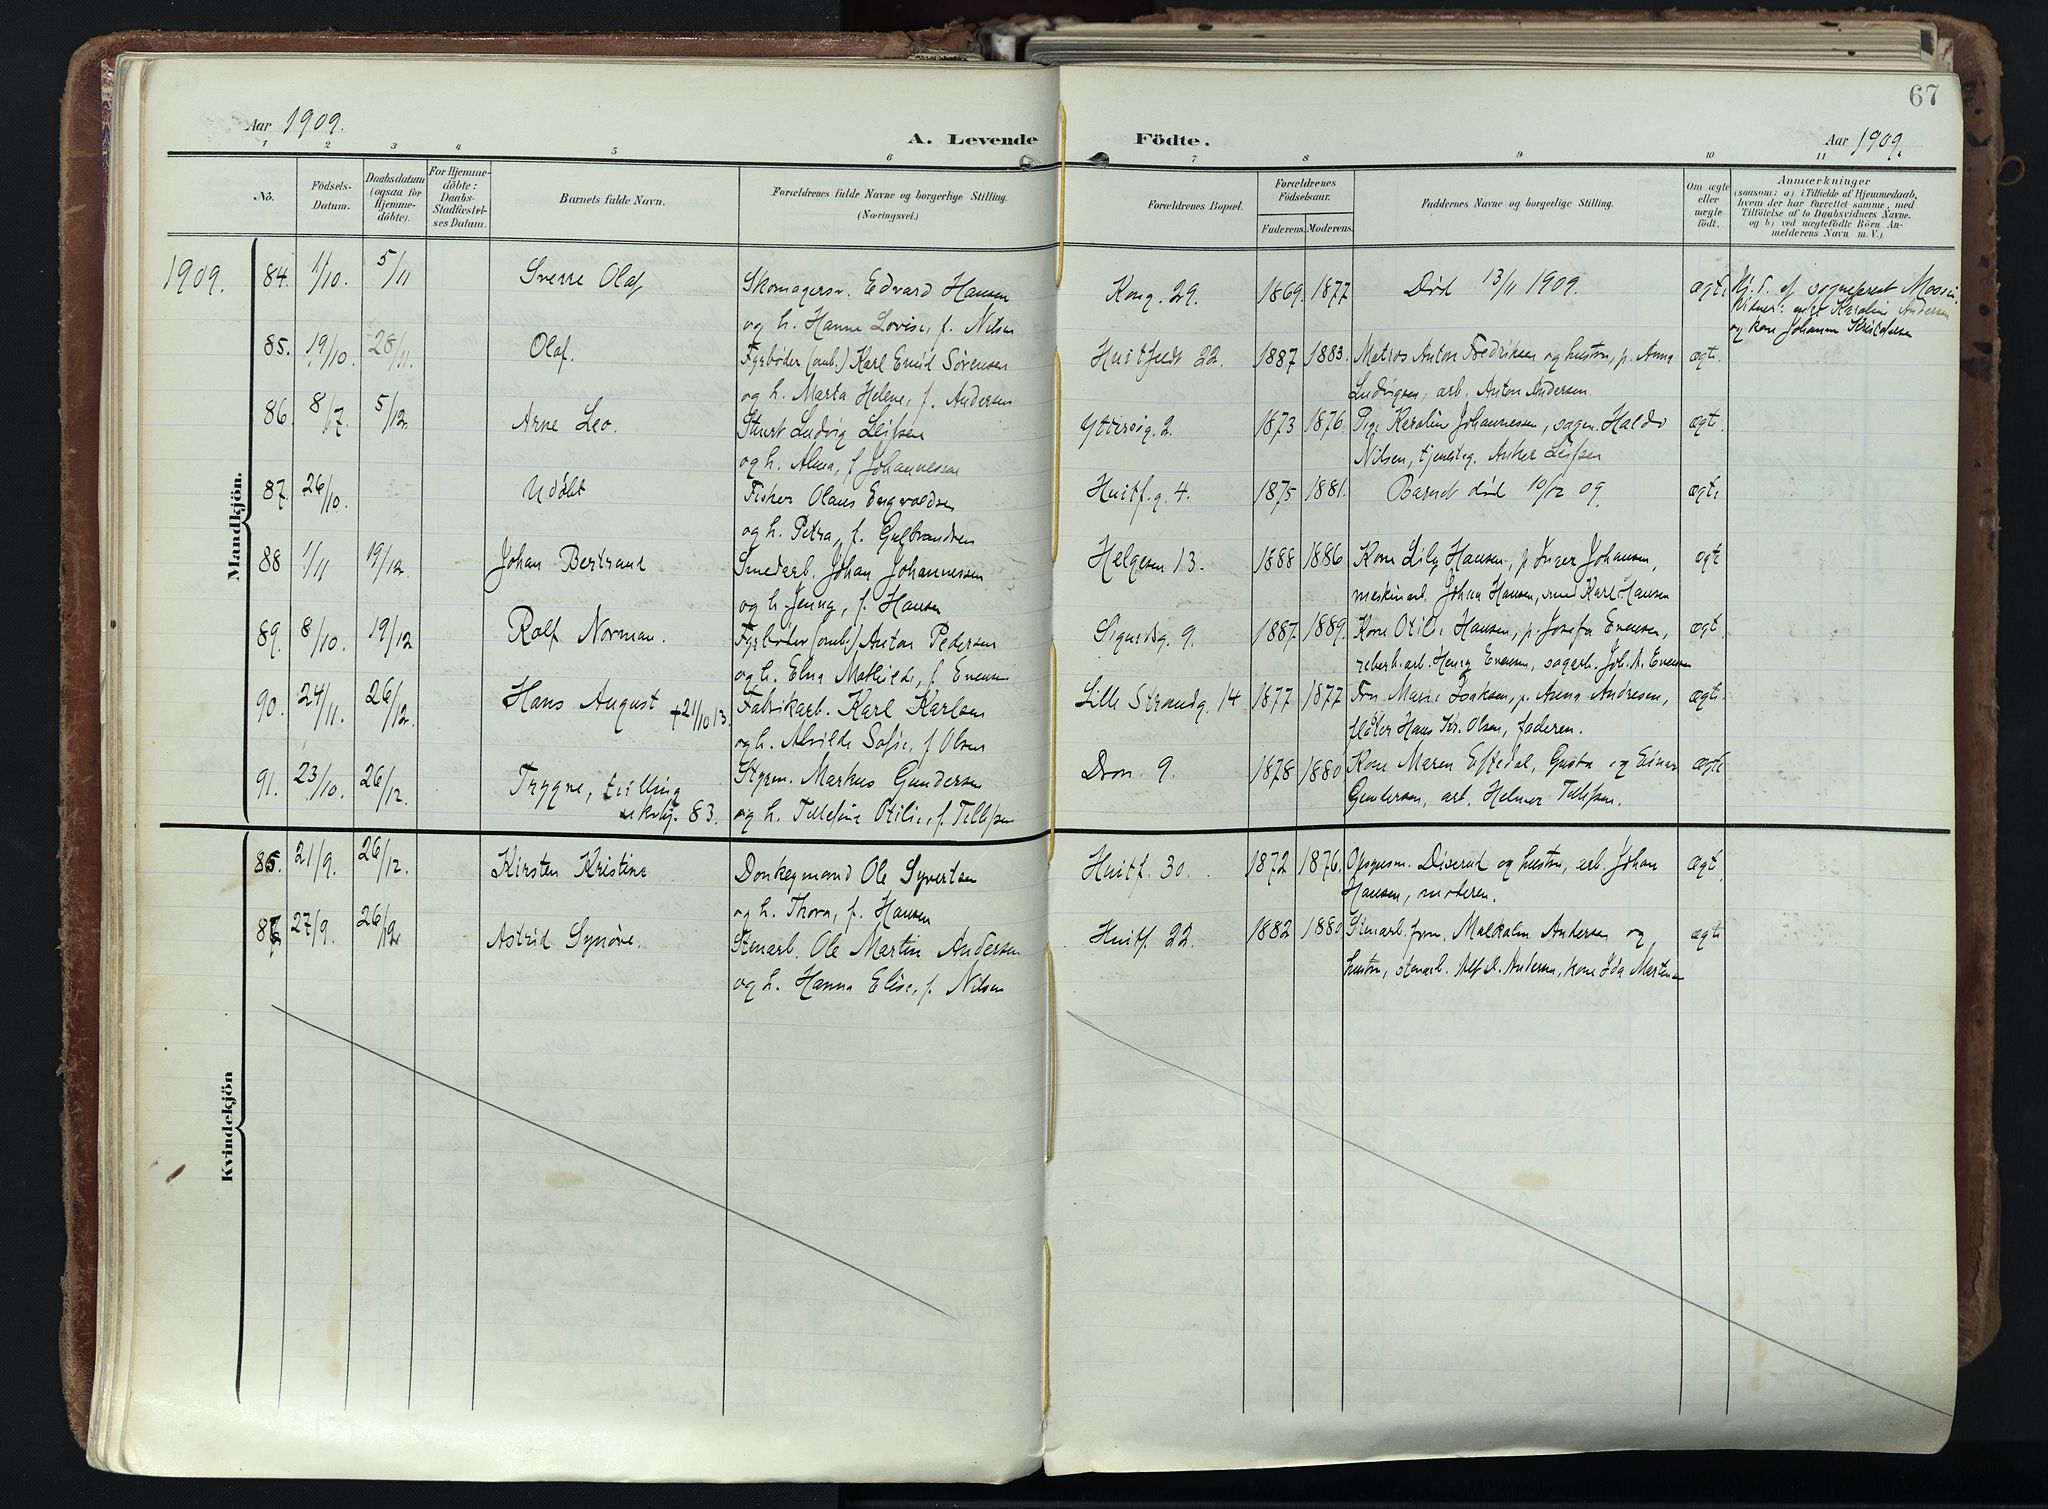 67
Aar 1909.
A. Levende Födte.
Aar 1909.
1 2 3 4 5 6 7 8 9 10 11
No.
Födsels-Datum.
Daabsdatum (ogsaa for Hjemmedöbte).
For Hjemmedöbte: Daabs-Stadfæstelses Datum.
Barnets fulde Navn.
Forældrenes fulde Navne og borgerlige Stilling.
(Næringsvei.)
Forældrenes Bopæl.
Forældrenes Födselsaar.
Faderens. Moderens.
Faddernes Navne og borgerlige Stilling.
Om ægte eller uægte födt.
Anmærkninger
(saasom: a) i Tilfælde af Hjemmedaab, hvem der har forrettet samme, med Tilföielse af to Daabsvidners Navne, og b) ved uægtefödte Börn Anmelderens Navn m. V.)
Mandkjön.
1909. 84. 1/10. 5/11 Sverre Olaf Skomagersv. Edvard Hansen Kong. 29. 1869. 1877 Död 13/11 1909. ægte Hj. d. af sogneprest
og h. Hanne Lovise, f. Nilsen Karoline Andersen
og kone Johanne
85. 19/10. 28/11. Olaf. Fyrböder (omb.) Karl Emil Sørensen Huitfeldt 22. 1887 1883. Matros Anton Fredriksen og hustru, p. Anna ægte.
og h. Marta Helene, f. Andersen Ludvigsen, arb. Anton Andersen.
86. 8/7. 5/12. Arne Leo. Stuert Ludvig Leifsen 2. 1873 1876. Pige Karolin Johannessen, sagm. Haldo ægte.
og h. Alma, f. Johannessen Nilsen, tjenesteg. Anker Leifsen
87. 26/10. Udöbt Fisker Olaus Engvaldsen Huitf. g. 4. 1875 1881. Barnet död 10/12 09. ægte
og h. Petra, f. Gulbrandsen
88 1/11 19/12. Johan Bertrand Smedarb. Johan Johannessen Helgesen 13. 1888 1886 Kone Lily Hansen, p. Inger Johansen, ægte
og h. Jenny, f. Hansen maskinarb. Johan Hansen, smed Karl Hansen
89. 8/10. 19/12 Rolf Norman. Fyrböder (omb.) Anton Pedersen Sigurdsg. 9. 1887. 1889. Kone Otilie Hansen, p. Josefa Evensen, ægte.
og h. Elna Mathilde, f. Evensen reberb.arb. Henry Evensen, sagarb. Joh. A. Evensen
90. 24/11. 26/12. Hans August +21/10 13. Fabrikarb. Karl Karlsen Lille Strandg. 14 1877 1877 Fru Marie Isaksen, p. Anna Andresen, ægte.
og h. Alvilde Sofie, f. Olsen fløter Hans Kr. Olsen, faderen.
91. 23/10. 26/12. Trygve, tvilling Styrm. Markus Gundersen Dron. 9. 1878 1880 Kone Maren Eftedal, Gusta og Einar ægte
83. og h. Tellefine Otilie, f. Tellefsen Gundersen, arb. Helmer Tellefsen.
Kvindekjön
85. 21/9. 26/12. Kirsten Kristine Donkeymand Ole Syvertsen Huitf. 30. 1872 1876. Opsynsm. Diserud og hustru, arb. Johan ægte
og h. Thora, f. Hansen Hansen, moderen.
86 27/9. 26/12 Astrid Synöve. Stenarb. Ole Martin Andersen Huitf. 22. 1882 1880 Stenarb. form. Malkolm Andersen og ægte
og h. Hanna Elise, f. Nilsen hustru, stenarb. Alf A. Andersen, kone Ida Martinsen